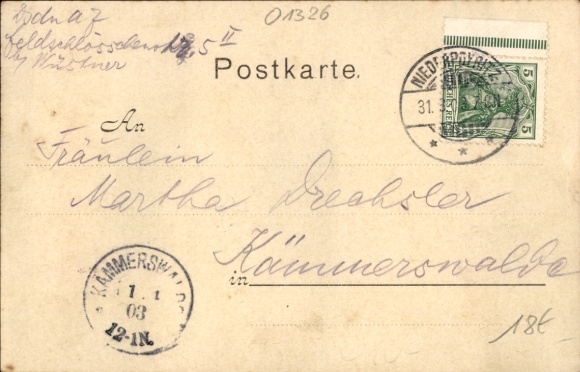 01326
Feldschlösschenstr. 5 II
Postkarte.
An
Fräulein
Martha Drechsler
in Kämmerswalde
NIEDERPOYRITZ
31. 3.
5 5
KÄMMERSWALDE
1 4
03
12-1N.
18€